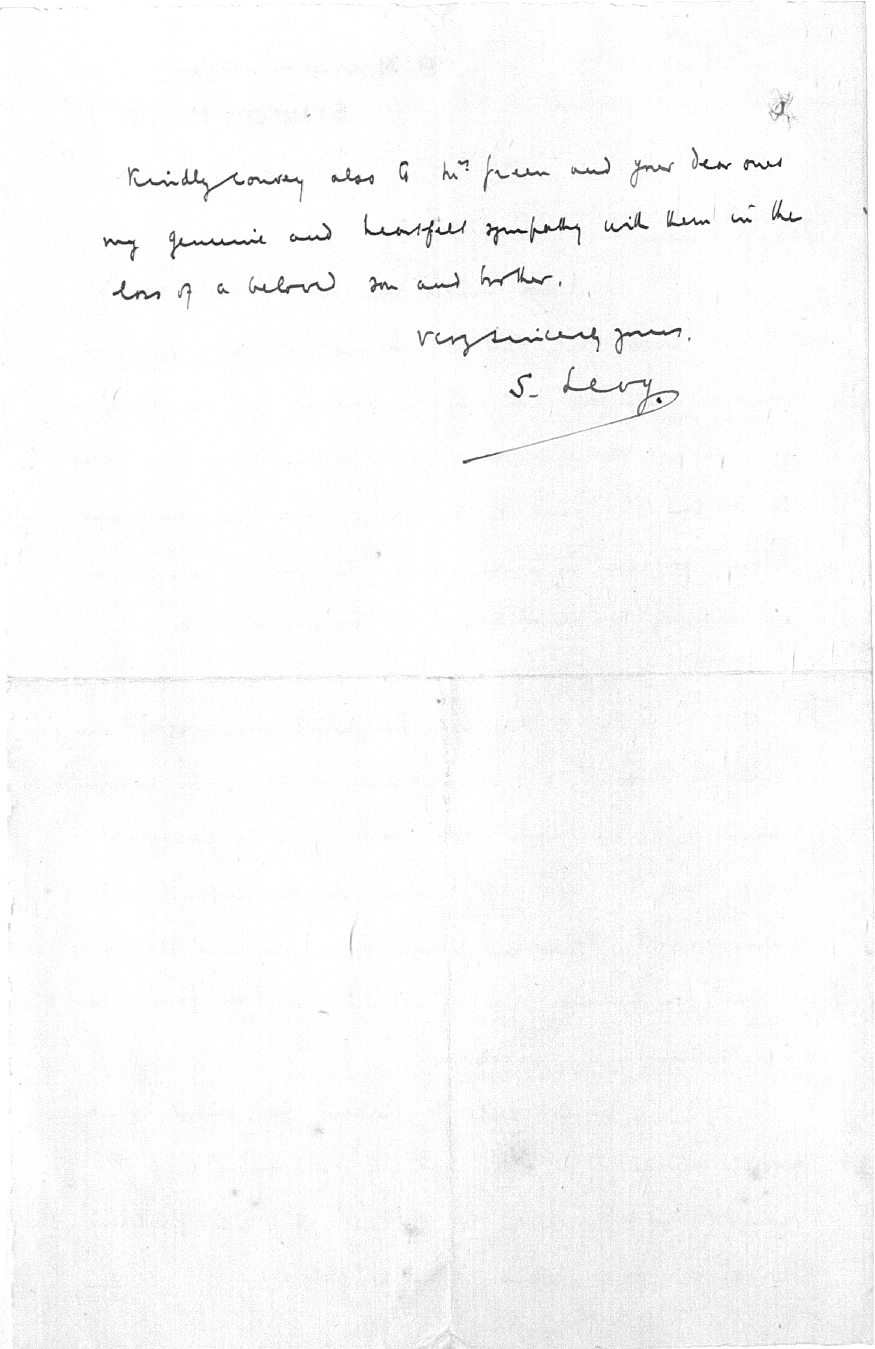 Kindly convey also to Mrs Green and your dear ones
my genuine and heartfelt sympathy with them in the
loss of a beloved son and brother.
Very sincerely yours.
S. Levy.